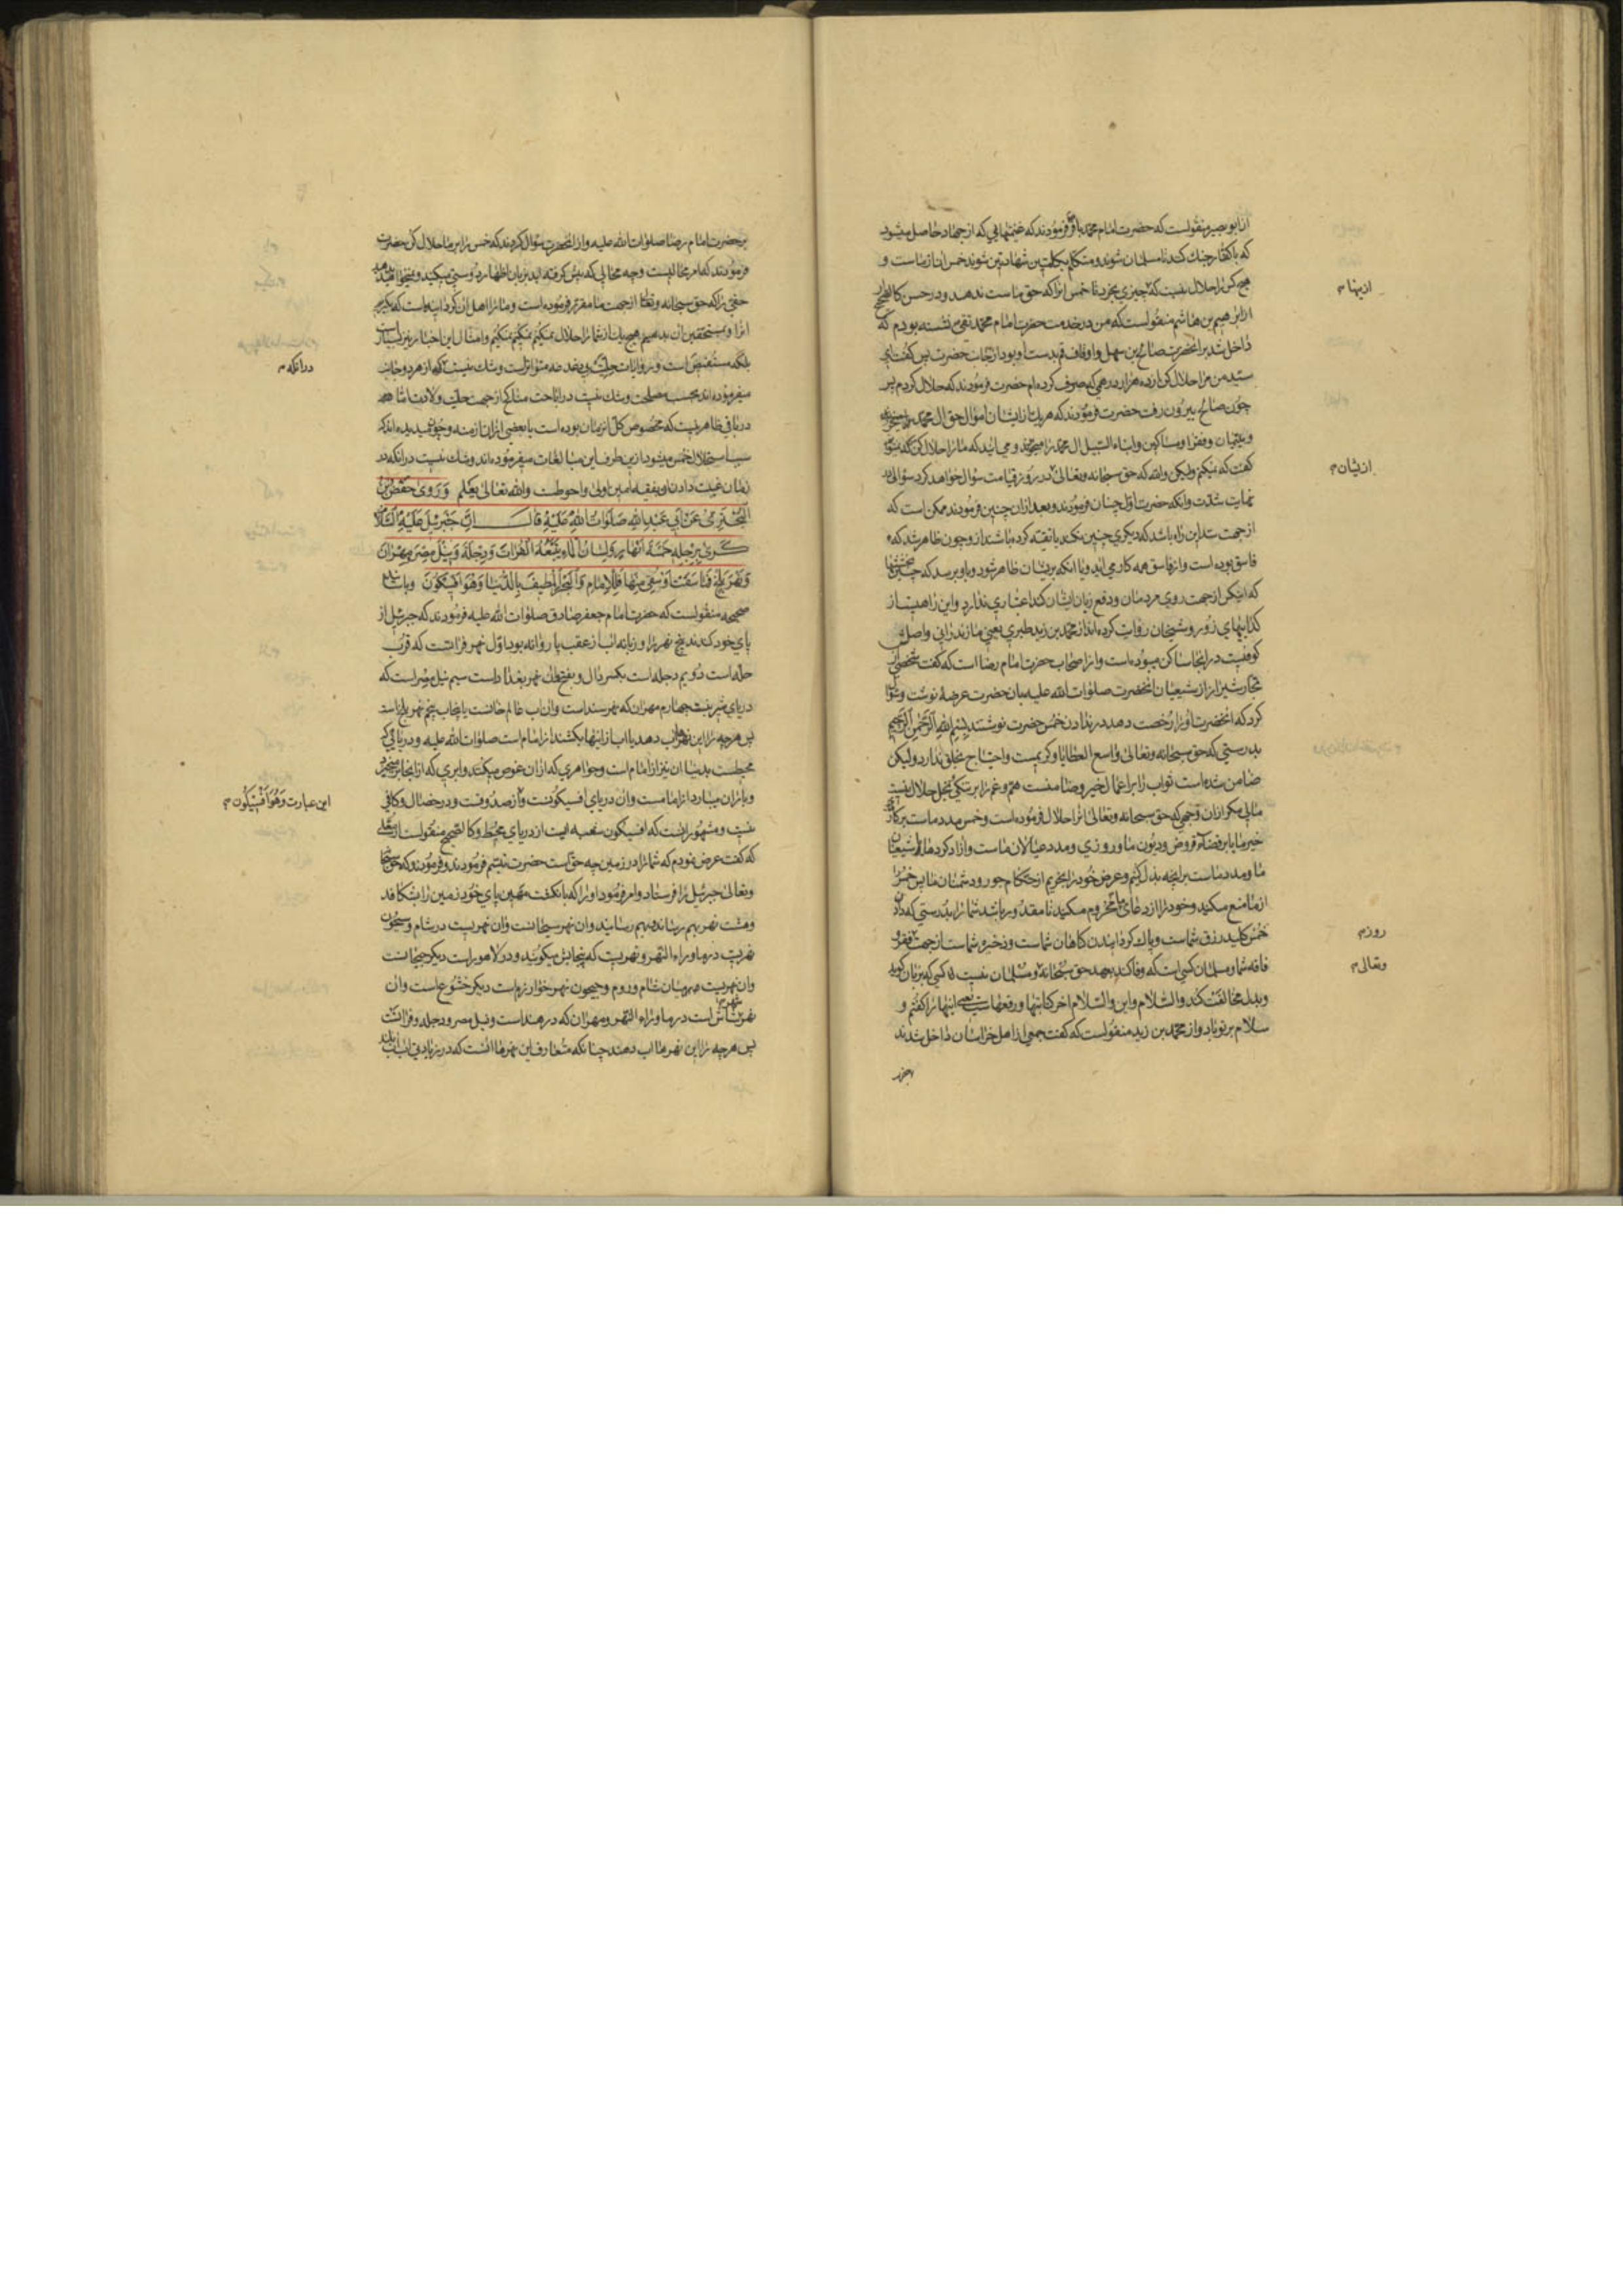 از ابو بصیر منقولست که حضرت امام محمد باقر فرمودند که غنیمتهایی که از جهاد حاصل میشود
که با کفار جنك کنند تا مسلمان شوند و متکلم بکلمتین شهادتین شوند خمس ان از ماست و
هیچ کس را حلال نیست که چیزی بخرد تا خمس انرا که حق ماست ندهد و در حسن کالصحیح
از ابرهیم بن هاشم منقولست که من در خدمت حضرت امام محمد تقی نشسته بودم که
داخل شد بر انحضرت صالح بن سهل و اوقاف قم بدست او بود از جانب حضرت پس گفت ای
سید من مرا حلال کن از ده هزار درهمی که صرف کرده‌ام حضرت فرمودند که حلال کردم پس
چون صالح بیرون رفت حضرت فرمودند که هریك از ایشان اموال حق ال محمد
و یتیمان و فقرا و مساکین و ابناء السبیل ال محمد را و می اید که ما را حلال کن
گفت که نمیکنم ولیکن والله که حق سبحانه و تعالی در روز قیامت سؤال خواهد کرد سؤالی
نهایت شدت و انکه حضرت اول چنان فرمودند و بعد از ان چنین فرمودند ممکن است که
از جهت این باشد که دیگری چنین نکند یا تقیه کرده باشند از و چون ظاهر شد که
فاسق بوده است و از فاسق همه کار می اید و یا انکه بر ایشان ظاهر شود و باو برسد که
که اینکس از جهت روی مردمان و دفع زبان ایشان کند اعتباری ندارد و این راهیست از
کذابیهای زور و شیخان روایت کرده‌اند از محمد بن زید طبری یعنی مازندرانی و اصلش
کوفیست در انجا ساکن میبوده است و از اصحاب حضرت امام رضا است که گفت شخصی از
تجار شیراز از شیعیان انحضرت صلوات الله علیه بان حضرت عرضه نوشت و
کرد که انحضرت او را رخصت دهد در ندادن خمس حضرت نوشتند بسم الله الرحمن الرحیم
بدرستی که حق سبحانه و تعالی واسع العطایا و کریمست و احتیاج بخلق ندارد ولیکن
ضامن شده‌است ثواب را بر اعمال خیر و ضامنست هم و غم را بر تنگی بخل حلال نیست
مالی مگر از ان وجهی که حق سبحانه و تعالی انرا حلال فرموده است و خمس مدد ماست بر
خیر ما یا بر قضاء قروض و دیون ما و روزی و مدد عیالان ماست و ازاد کرده‌های شیعیان
ما و مدد ماست بر انچه بذل کنیم و عرض خود را بخریم از حکام جور و دشمنان ما پس خمس را
از ما منع مکنید و خود را از دعای ما محروم مکنید تا مقدور باشد شما را بدرستی که دادن
خمس کلید رزق شماست و پاك گردانیدن گناهان شماست و ذخیره شماست از جهت فقر و
فاقه شما و مسلمان کسی است که وفا کند بعهد حق سبحانه و مسلمان نیست کسی که بزبان گوید
و بدل مخالفت کند و السلام و این والسلام اخر کتابتها و رقعهاست یعنی اینها را گفتم و
سلام بر تو باد و از محمد بن زید منقولست که گفت جمعی از اهل خراسان داخل شدند
بر حضرت
از ینها م
از یشان م
روزم
و تعالی م
بر حضرت امام رضا صلوات الله علیه و از انحضرت سؤال کردند که خمس را بر ما حلال کن حضرت
فرمودند که این محالیست وچه محالی که پیش گرفته اید بزبان اظهار دوستی میکنید و میخواهید
حقی را که حق سبحانه و تعالی از جهت ما مقرر فرموده است و ما را اهل ان گردانیده‌است که بگیریم
انرا و بمستحقین ان بدهیم هیچ یك از شما را حلال نمیکنم نمیکنم نمیکنم و امثال این اخبار نیز بسیار است
بلکه مستفیض است و روایات حلیت بی دغدغه متواتر است و شك نیست که از هر دو جانب
میفرموده‌اند بحسب مصلحت و شك نیست در اباحت مناکح از جهت حلیت ولادت اما
در باقی ظاهر نیست که مخصوص کل ازمان بوده است یا بعضی از ان ازمنه و چون میدیده‌اند که
سبب استحلال خمس میشود از ین طرف این مبالغات میفرموده‌اند و شك نیست در انکه در
زمان غیبت دادن او بفقیه امین اولی و احوطست والله تعالی یعلم وَ رَوی حَفصُ بنُ
البَختَریِّ عَن اَبی عَبدِ اللهِ صَلَواتُ اللهِ عَلَیهِ قالَ اِنَّ جَبرَئیلَ عَلَیهِ السَّلامُ
کَری بِرِجلِهِ خَمسَةَ اَنهارٍ وَ لِسانُ الماءِ یَتبَعُهُ الفُراتَ وَ دِجلَةَ وَ نیلَ مِصرَ وَ مِهرانَ
وَ نَهرَ بَلخٍ فَما سَقَت اَو سُقِیَ مِنها فَلِلاِمامِ وَ البَحرُ المُطیفُ بِالدُّنیا وَ هُوَ اَفسیکُون و باسانید
صحیحه منقولست که حضرت امام جعفر صادق صلوات الله علیه فرمودند که جبرئیل از
پای خود کندند پنج نهر را و زبانه اب از عقب پا روانه بود اول نهر فراتست که قرب
حله است دویم دجله است بکسر دال و بفتح ان نهر بغداد است سیم نیل مصر است که
دریای شیرینیست چهارم مهران که نهر سند است و ان اب عالم خانست یا پنجاب پنجم نهر بلخ است
پس هرچه را این نهرها اب دهد یا اب از اینها بکشند از امام است صلوات الله علیه و دریایی که
محیطست بدنیا ان نیز از امام است و جواهری که از ان غوص میکنند و ابری که از انجا بر میخیزد
و باران میبارد از امامست و ان دریای افسیکونست و از صدوقست و در خصال و کافی
نیست و مشهور انست که افسیکون شعبه ایست از دریای محیط و کالصحیح منقولست از معلی
که گفت عرض نمودم که شما را در زمین چه حق است حضرت تبسم فرمودند و فرمودند که حق سبحانه
و تعالی جبرئیل را فرستاد و امر فرمود او را که بانگشت مهین پای خود زمین را بشکافد
و هشت نهر بهم رسانید و ان نهر سیحانست و ان نهریست در شام و سیحون
نهریست در ماوراء النهر و نهریست که پنجابش میگویند و در لاهور است دیگر جیحانست
و ان نهریست میان شام و روم و جیحون نهر خوارزم است دیگر خشوع است و ان
نهر شاش است در ماوراء النهر و مهران که در هند است و نیل مصر و دجله و فراتست
پس هرچه را این نهرها اب دهند چنانکه متعارف این نهرها انست که در زیادتی اب
در انکه م
این عبارت وَهُوَ اَفْسیکُون م